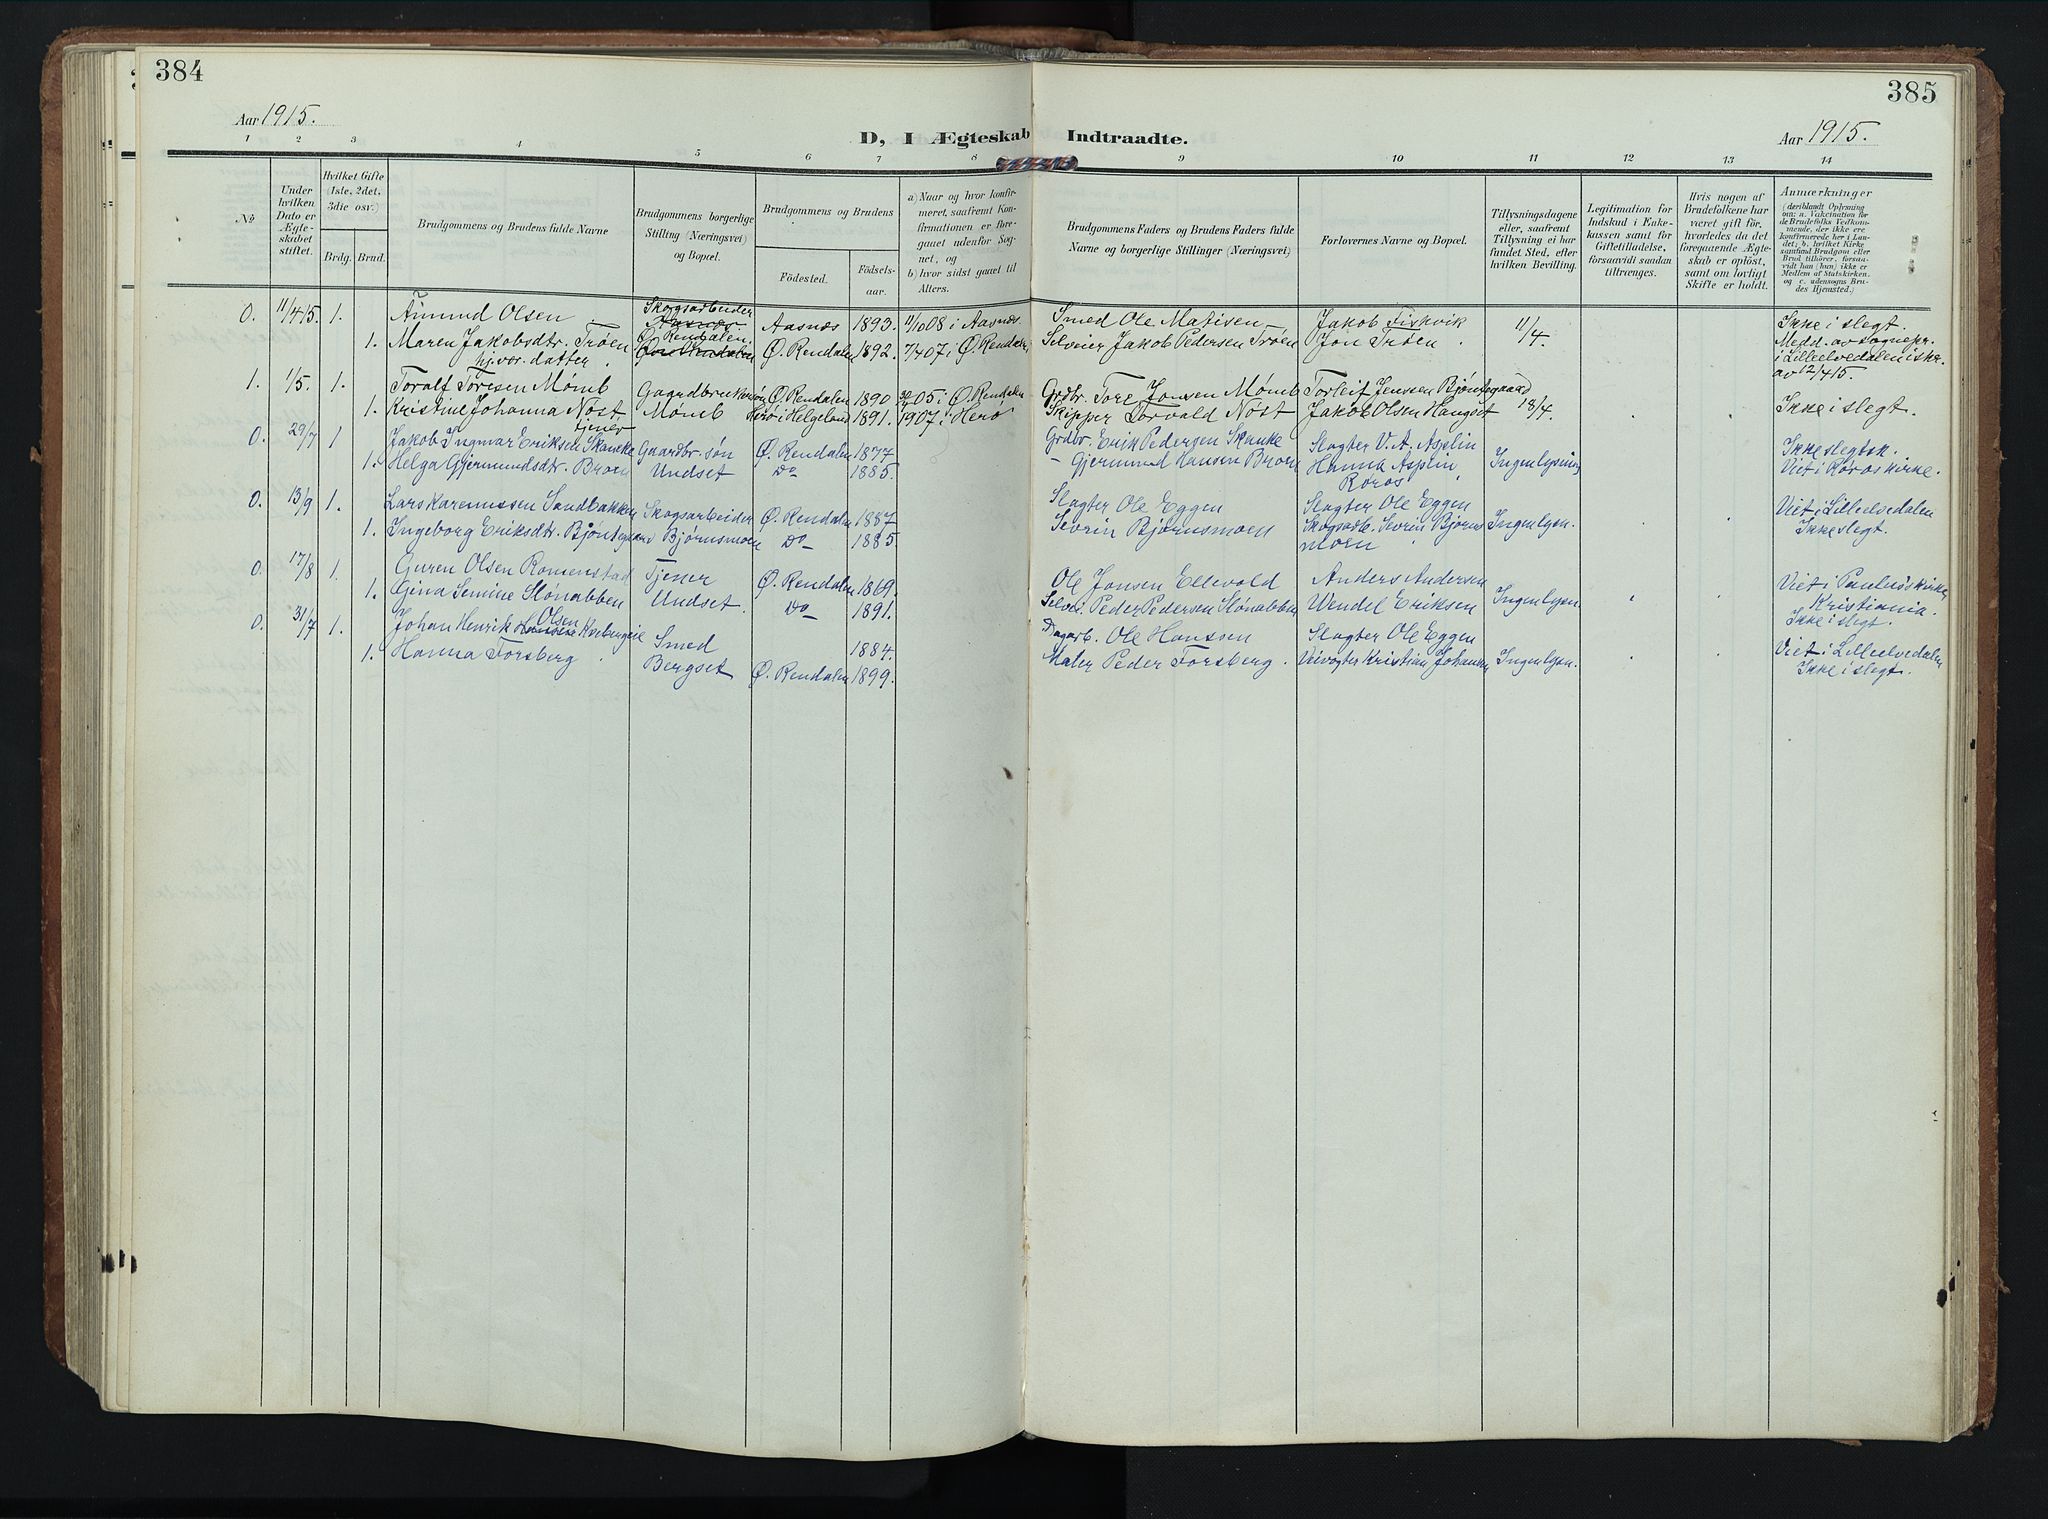 384
385
Aar 1915.
D, I Ægteskab Indtraadte.
Aar 1915.
1 2 3 4 5 6 7 8 9 10 11 12 13 14
No
Under hvilken Dato er Ægteskabet stiftet.
Hvilket Gifte (1ste, 2det, 3die osv.)
Brdg. Brud.
Brudgommens og Brudens fulde Navne
Brudgommens borgerlige Stilling (Næringsvei) og Bopæl.
Brudgommens og Brudens
Födested.
Födselsaar.
a) Naar og hvor konfirmeret, saafremt Konfirmationen er foregaaet udenfor Sognet, og
b) hvor sidst gaaet til Alters.
Brudgommens Faders og Brudens Faders fulde Navne og borgerlige Stillinger (Næringsvei)
Forlovernes Navne og Bopæl.
Tillysningsdagene eller, saafremt Tillysning ei har fundet Sted, efter hvilken Bevilling.
Legitimation for Indskud i Enkekassen samt for Giftetilladelse, forsaavidt saadan tiltrænges.
Hvis nogen af Brudefolkene har været gift för, hvorledes da det foregaaende Ægteskab er oplöst, samt om lovligt Skifte er holdt.
Anmærkninger (deriblandt Oplysning om: a. Vakcination for de Brudefolks Vedkommende, der ikke ere konfirmerede her i Landet; b. hvilket Kirkesamfund Brudgom eller Brud tilhörer, forsaavidt han (hun) ikke er Medlem af Statskirken, og c. udensogns Brudes Hjemsted.)
0. 11/4 15. 1. Amund Olsen Skogsarbeider Aasnæs 1893. 11/10 08 i Aasnæs. Smed Ole Matisen Jakob Fiskvik 11/4. Ikke i slegt.
1. Maren Jakobsdtr. Trøen Ø. Rendalen. Ø. Rendalen 1892. 7/4 07 i Ø. Rendalen Selveier Jakob Pedersen Trøen Jon Trøen. Medd. av Sognepr.
hj. vær. datter. i Lilleelvedalen i skr. av 12/4 15.
1. 1/5. 1. Toralf Toresen Mømb Gaardbruker Ø. Rendalen 1890 05 i Ø. Rendalen Grdbr. Tore Jonsen Mømb Torleif Jenssen Bjøntegaard 18/4.
1. Kristine Johanna Nøst Mømb Herø i Helgeland 1891. 1907 i Herø Skipper Torvald Nøst Jakob Olsen Haugset Ikke i slegt.
tjener
0. 29/7 1 Jakob Ingmar Eriksen Skanke Gaardbr. søn Ø. Rendalen 1877 Grdbr. Erik Pedersen Skanke Slagter V. A. Asplin Ikke slegtsk.
1. Helga Gjermundsdtr. Broen Undset Do 1885. - Gjermund Hansen Broen Hanna Asplin, Røros Ingen lysning Viet i Røros kirke.
0. 13/9 1. Lars Karenussen Sandbakken Skogsarbeider Ø. Rendalen 1887 Slagter Ole Eggen Slagter Ole Eggen Viet i Lilleelvedalen
1. Ingeborg Eriksdtr. Bjøntegaard Bjørnsmoen Do 1885. Sevrin Bjørnsmoen Skogsarb. Sevrin Bjørnsmoen Ingen lysn. Ikke slegt.
0. 17/8 1. Guren Olsen Romenstad Tjener Ø. Rendalen 1869. Ole Jonsen Ellevold Anders Andersen Viet i Paulus kirke
1. Gina Semine Slønabben Undset. Do 1891. Selvei. Peder Pedersen Slønabben Wendel Eriksen Ingen lysn. Kristiania. Ikke i slegt.
0. 31/7 1. Johan Henrik Olsen Kvebergeie Smed 1884. Dagarb. Ole Hanssen Slagter Ole Eggen Viet i Lilleelvedalen
1. Hanna Forsberg. Bergset Ø. Rendalen 1899. Maler Peder Forsberg. Veivogter Kristian Johansen Ingen lysn. Ikke i slegt.